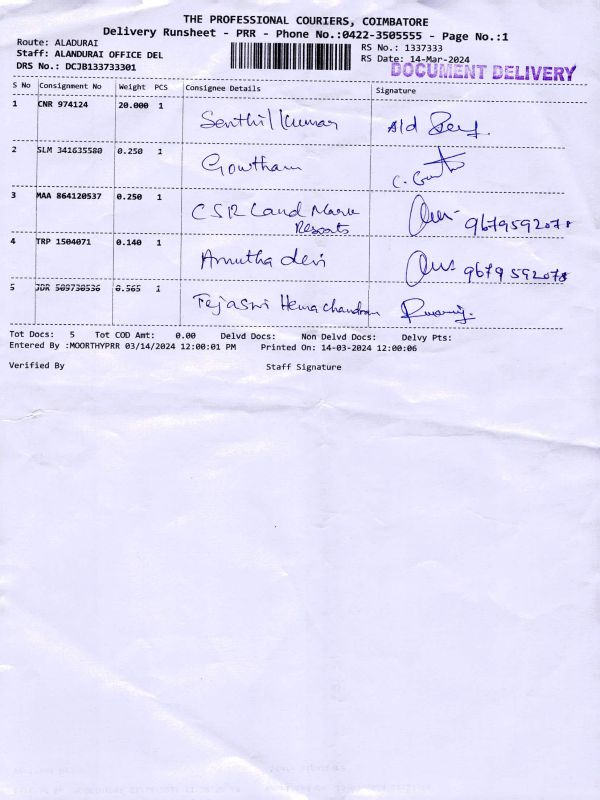 THE PROFESSIONAL COURIERS, COIMBATORE
Delivery Runsheet - PRR - Phone No.:0422-3505555 - Page No.:1
Route: ALADURAI
RS No.: 1337333
Staff: ALANDURAI OFFICE DEL
RS Date: 14-Mar-2024
DRS No.: DCJB133733301
DOCUMENT DELIVERY
S No Consignment No Weight PCS Consignee Details Signature
1 CNR 974124 20.000 1 Senthil Kumar
2 SLM 341635580 0.250 1 Gowtham
3 MAA 864120537 0.250 1 CSR Land Mark 9679592078
Resorts
4 TRP 1504071 0.140 1 Amutha devi 9679592078
5 JDR 509730536 0.565 1 Tejasri Hemachandran
Tot Docs: 5 Tot COD Amt: 0.00 Delvd Docs: Non Delvd Docs: Delvy Pts:
Entered By :MOORTHYPRR 03/14/2024 12:00:01 PM Printed On: 14-03-2024 12:00:06
Verified By Staff Signature